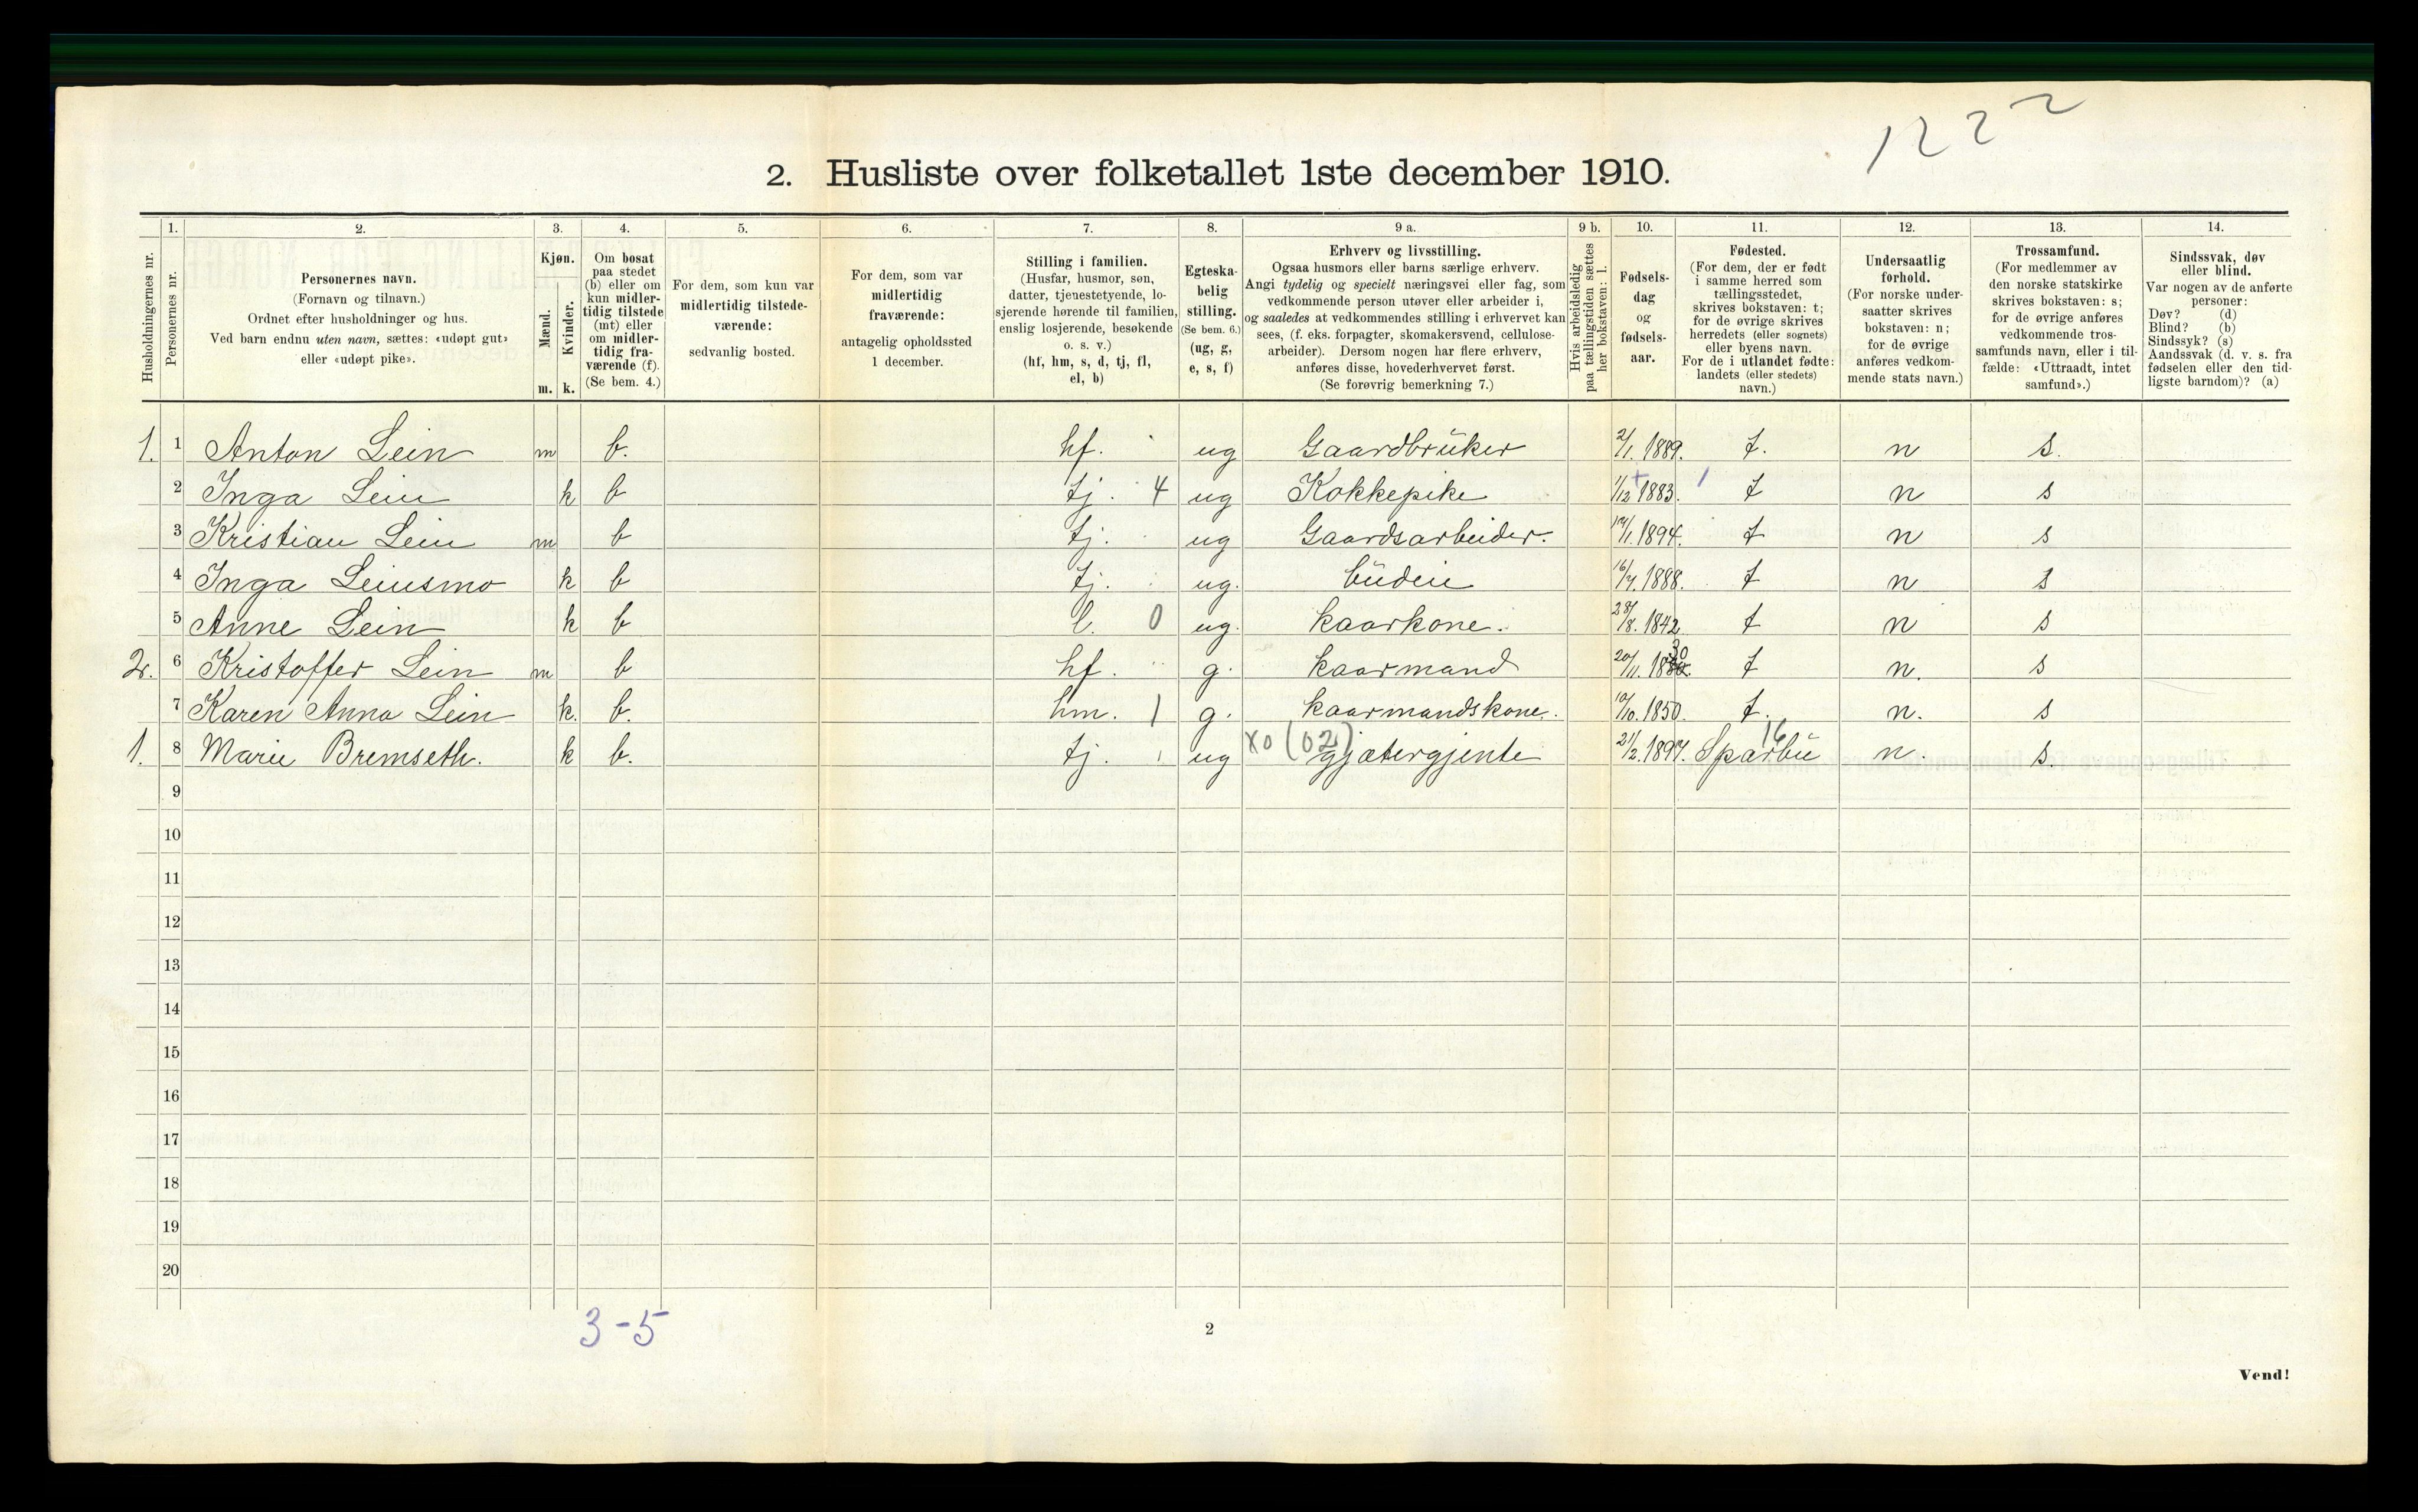 1222
2. Husliste over folketallet 1ste december 1910.
Husholdningernes nr.
1. Personernes nr.
2. Personernes navn.
(Fornavn og tilnavn.)
Ordnet efter husholdninger og hus.
Ved barn endnu uten navn, sættes: «udøpt gut»
eller «udøpt pike».
3. Kjøn.
Mænd. m.
Kvinder. k.
4. Om bosat
paa stedet
(b) eller om
kun midler-
tidig tilstede
(mt) eller
om midler-
tidig fra-
værende (f).
(Se bem. 4.)
5. For dem, som kun var
midlertidig tilstede-
værende:
sedvanlig bosted.
6. For dem, som var
midlertidig
fraværende:
antagelig opholdssted
1 december.
7. Stilling i familien.
(Husfar, husmor, søn,
datter, tjenestetyende, lo-
sjerende hørende til familien,
enslig losjerende, besøkende
o. s. v.)
(hf, hm, s, d, tj, fl,
el, b)
8. Egteska-
belig
stilling.
(Se bem. 6.)
(ug, g,
e, s, f)
9 a. Erhverv og livsstilling.
Ogsaa husmors eller barns særlige erhverv.
Angi tydelig og specielt næringsvei eller fag, som
vedkommende person utøver eller arbeider i,
og saaledes at vedkommendes stilling i erhvervet kan
sees, (f. eks. forpagter, skomakersvend, cellulose-
arbeider). Dersom nogen har flere erhverv,
anføres disse, hovederhvervet først.
(Se forøvrig bemerkning 7.)
9 b. Hvis arbeidsledig
paa tællingstiden sættes
her bokstaven: l.
10. Fødsels-
dag
og
fødsels-
aar.
11. Fødested.
(For dem, der er født
i samme herred som
tællingsstedet,
skrives bokstaven: t;
for de øvrige skrives
herredets (eller sognets)
eller byens navn.
For de i utlandet fødte:
landets (eller stedets)
navn.)
12. Undersaatlig
forhold.
(For norske under-
saatter skrives
bokstaven: n;
for de øvrige
anføres vedkom-
mende stats navn.)
13. Trossamfund.
(For medlemmer av
den norske statskirke
skrives bokstaven: s;
for de øvrige anføres
vedkommende tros-
samfunds navn, eller i til-
fælde: «Uttraadt, intet
samfund».)
14. Sindssvak, døv
eller blind.
Var nogen av de anførte
personer:
Døv? (d)
Blind? (b)
Sindssyk? (s)
Aandssvak (d. v. s. fra
fødselen eller den tid-
ligste barndom)? (a)
1. 1 Anton Lein m b. hf. ug Gaardbrüker 2/1. 1889. t. n s.
2 Inga Lein k b tj. 4 ug Kokkepike 1/12 1883. t n s
3 Kristian Lein m b tj. ug Gaardsarbeider. 1894. t n s
4 Inga Leinsmo k b tj. ug. büdeie 1888. t n s
5 Anne Lein k b 0 ug. kaarkone. 28/8. 1842 t n s
2. 6 Kristoffer Lein m b hf. g. kaarmand 20/11. 1830 t n. s
7 Karen Anna Lein k. b. hm. 1 g. kaarmandskone. 10/10. 1850. t. n. s
1. 8 Marie Bremseth. k b. tj. ug xo (02) gjætergjente 21/2. 1897. Sparbü 16 n. s.
9
10
11
12
13
14
15
16
17
18
19
20
3-5
2
Vend!